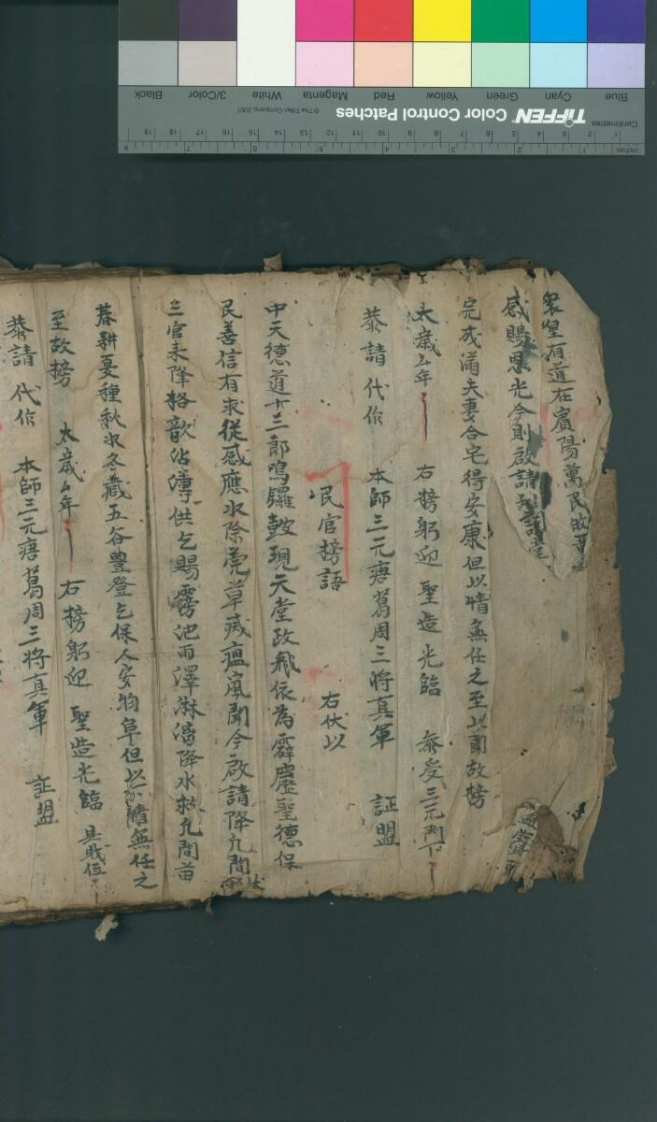 道在賓陽萬民
感賜恩光今則啟請
完成滿夫妻合宅得安康但以情無任之至以聞故榜
太歲厶年 右榜躬迎 聖造光臨 泰受三元門下
恭請代作 本師三元唐葛周三將真軍 証盟
民官榜語 右伏以
中天德道十三郎鳴鑼鼓現天堂政 依為霹靂聖德保
民善信有求從感應 除 草 瘟 聞今啟請降九間
三官來降格歆沾薄供乞賜 池雨澤淋 降水救九間苗
春耕夏種秋收冬藏五谷豊登乞保人安物阜但以 情無任之
至故榜 太歲厶年 右榜躬迎 聖造光臨 具戝位
恭請代作 本師三元唐葛周三將真軍 証盟
TIFFEN Color Control Patches
© The Tiffen Company, 2007
Blue Cyan Green Yellow Red Magenta White 3/Color Black
Centimetres 1 2 3 4 5 6 7 8 9 10 11 12 13 14 15 16 17 18 19
Inches 1 2 3 4 5 6 7 8